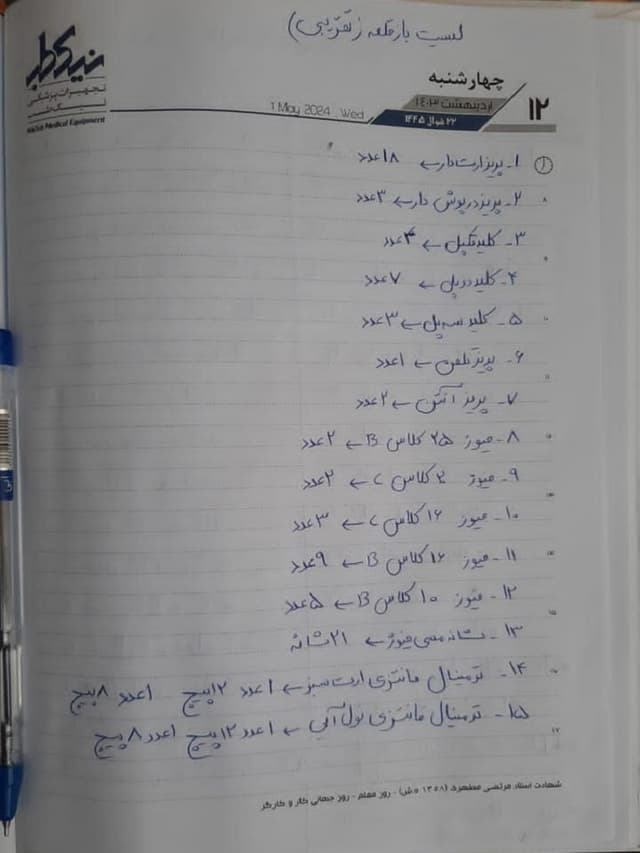 لیست باز قلعه (تقریبی)
نیکاطب
تجهیزات پزشکی
نیک طب
NikTeb Medical Equipment
چهارشنبه
۱۲
اردیبهشت ۱۴۰۳
1 May 2024 . Wed
۲۲ شوال ۱۴۴۵
۱- پریز ارت دار ← ۱۸ عدد
۲- پریز درپوش دار ← ۳ عدد
۳- کلید تکپل ← ۴ عدد
۴- کلید دو پل ← ۷ عدد
۵- کلید سه پل ← ۳ عدد
۶- پریز تلفن ← ۱ عدد
۷- پریز آنتن ← ۲ عدد
۸- فیوز ۲۵ کلاس B ← ۲ عدد
۹- فیوز ۲ کلاس C ← ۲ عدد
۱۰- فیوز ۱۶ کلاس C ← ۳ عدد
۱۱- فیوز ۱۶ کلاس B ← ۹ عدد
۱۲- فیوز ۱۰ کلاس B ← ۵ عدد
۱۳- شانه مسی فیوز ← ۲۱ شانه
۱۴- ترمینال مانتری ارت سبز ← ۱ عدد ۱۲ پیچ ۱ عدد ۸ پیچ
۱۵- ترمینال مانتری نول آبی ← ۱ عدد ۱۲ پیچ ۱ عدد ۸ پیچ
شهادت استاد مرتضی مطهری (۱۳۵۸ ه.ش) - روز معلم - روز جهانی کار و کارگر